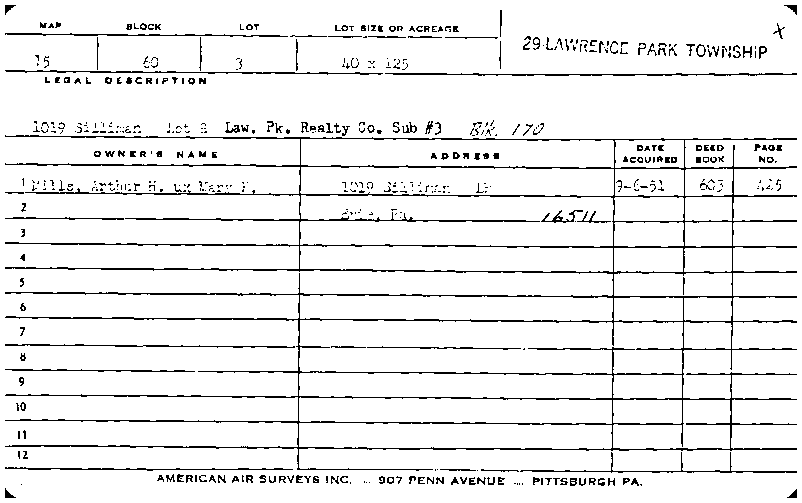 MAP BLOCK LOT LOT SIZE OR ACREAGE
29-LAWRENCE PARK TOWNSHIP X
15 60 3 40 x 125
LEGAL DESCRIPTION
1019 Silliman Lot Law. Pk. Realty Co. Sub #3 Blk. 170
OWNER'S NAME ADDRESS DATE ACQUIRED DEED BOOK PAGE NO.
1 Arthur H. ux Mary 1019 Silliman 9-6-51 603 425
2 Erie, Pa. 16511
3
4
5
6
7
8
9
10
11
12
AMERICAN AIR SURVEYS INC. ... 907 PENN AVENUE .... PITTSBURGH PA.